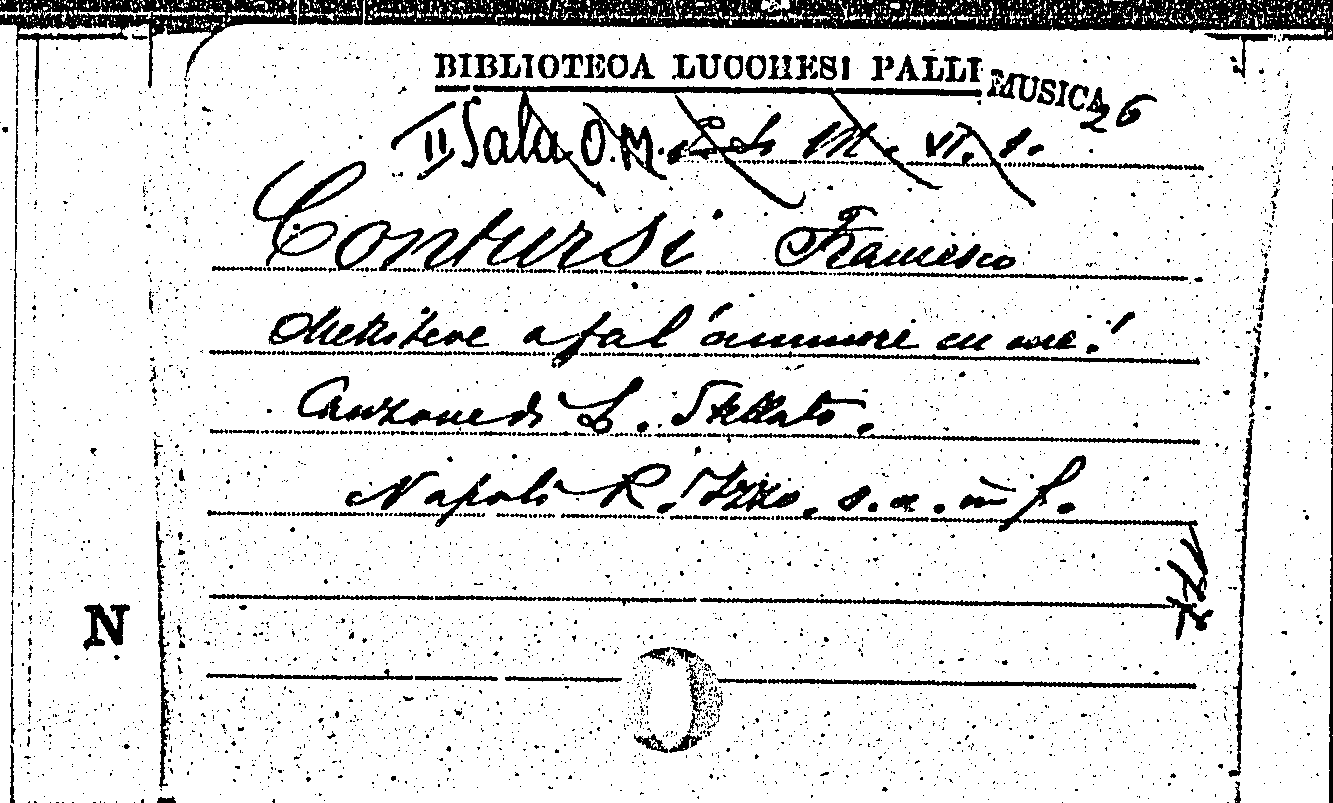 BIBLIOTECA LUCCHESI PALLI MUSICA
26
II Sala O.M. VI. 1.
Contursi Francesco
Mettiteve a fa l'ammore cu me!
Canzone di L. Stellato.
Napoli R. Izzo. s. a. in f.
N